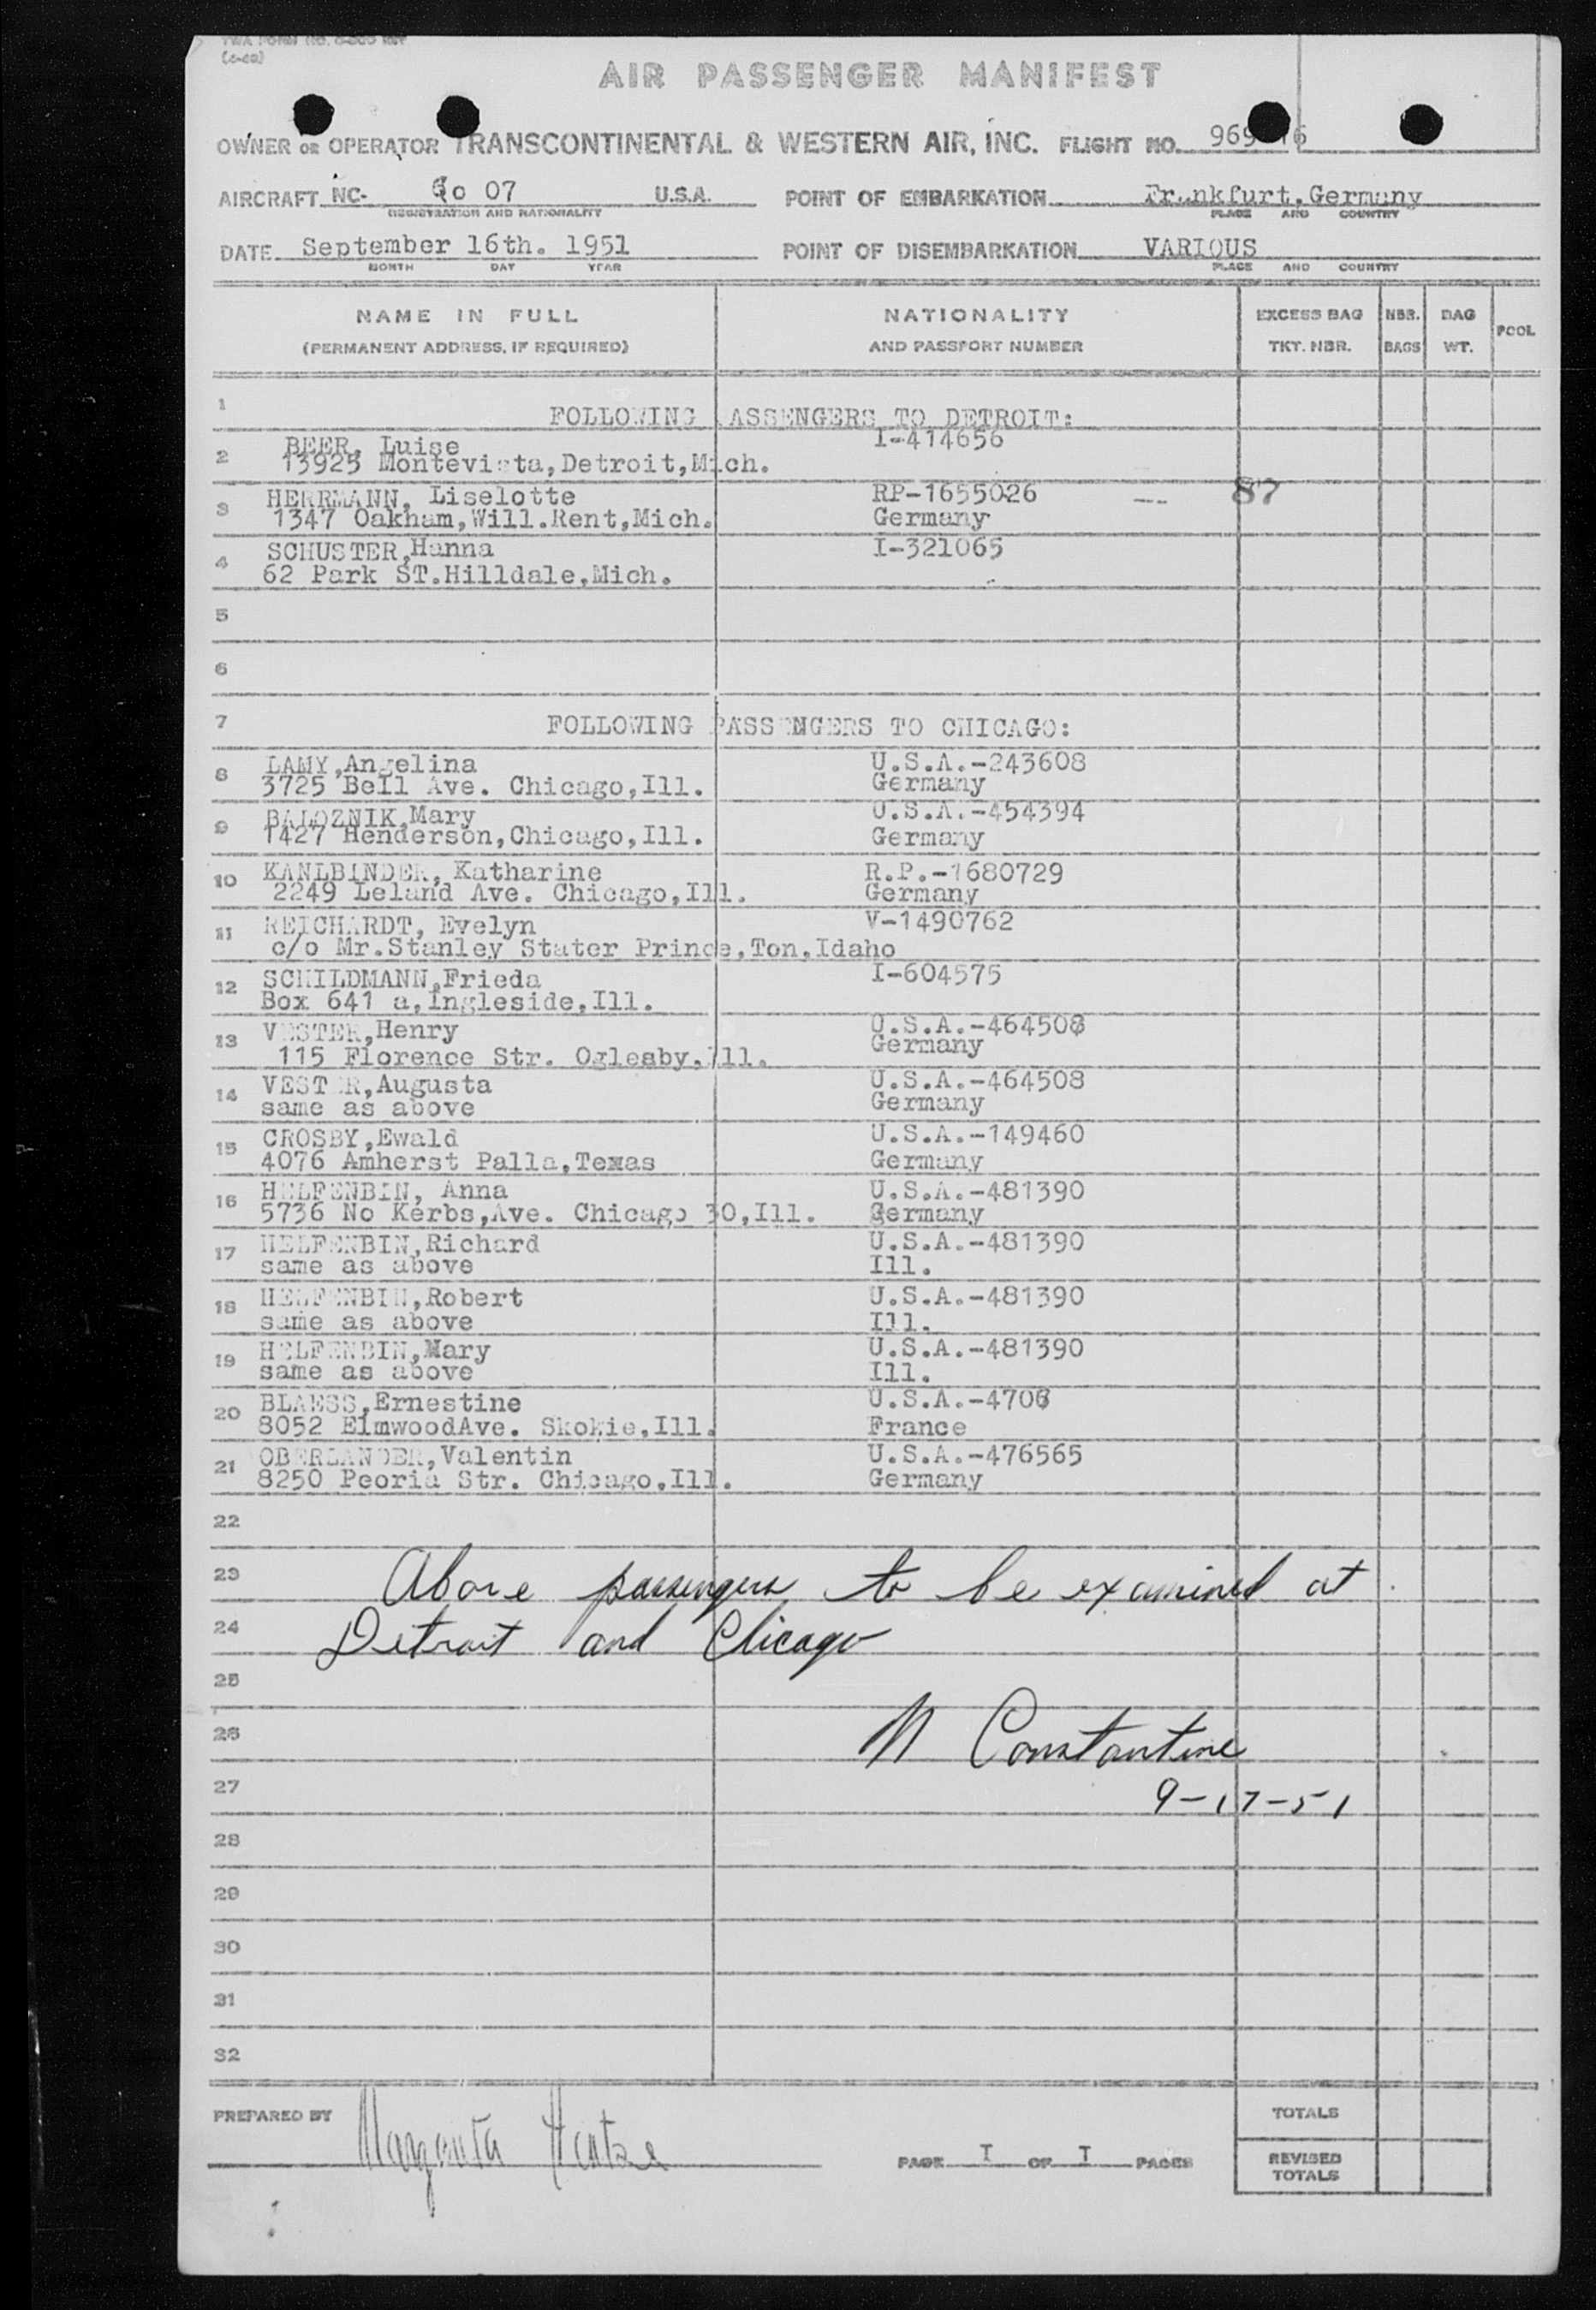 AIR PASSENGER MANIFEST
OWNER OR OPERATOR TRANSCONTINENTAL & WESTERN AIR, INC. FLIGHT NO. 969 16
AIRCRAFT NC- 6o 07 U.S.A. POINT OF EMBARKATION Frankfurt,Germany
REGISTRATION AND NATIONALITY PLACE AND COUNTRY
DATE September 16th. 1951 POINT OF DISEMBARKATION VARIOUS
MONTH DAY YEAR PLACE AND COUNTRY
NAME IN FULL NATIONALITY EXCESS BAG NBR. BAG POOL
(PERMANENT ADDRESS, IF REQUIRED) AND PASSPORT NUMBER TKT. NBR. BAGS WT.
1 FOLLOWING PASSENGERS TO DETROIT:
2 BEER, Luise I-414656
13925 Montevista,Detroit,Mich.
3 HERRMANN, Liselotte RP-1655026 -- 87
1347 Oakham,Will.Rent,Mich. Germany
4 SCHUSTER,Hanna I-321065
62 Park ST.Hilldale,Mich.
5
6
7 FOLLOWING PASSENGERS TO CHICAGO:
8 LAMY,Angelina U.S.A.-243608
3725 Bell Ave. Chicago,Ill. Germany
9 BALOZNIK,Mary U.S.A.-454394
1427 Henderson,Chicago,Ill. Germany
10 KANLBINDER, Katharine R.P.-1680729
2249 Leland Ave. Chicago,Ill. Germany
11 REICHARDT, Evelyn V-1490762
c/o Mr.Stanley Stater Prince,Ton,Idaho
12 SCHILDMANN,Frieda I-604575
Box 641 a,Ingleside,Ill.
13 VESTER,Henry U.S.A.-464508
115 Florence Str. Oglesby,Ill. Germany
14 VESTER,Augusta U.S.A.-464508
same as above Germany
15 CROSBY,Ewald U.S.A.-149460
4076 Amherst Palla,Texas Germany
16 HELFENBIN, Anna U.S.A.-481390
5736 No Kerbs,Ave. Chicago 30,Ill. Germany
17 HELFENBIN,Richard U.S.A.-481390
same as above Ill.
18 HELFENBIN,Robert U.S.A.-481390
same as above Ill.
19 HELFENBIN,Mary U.S.A.-481390
same as above Ill.
20 BLAESS,Ernestine U.S.A.-4706
8052 ElmwoodAve. Skokie,Ill. France
21 OBERLANDER,Valentin U.S.A.-476565
8250 Peoria Str. Chicago,Ill. Germany
22
23 Above passengers to be examined at
24 Detroit and Chicago
25
26 M Constantine
27 9-17-51
28
29
30
31
32
PREPARED BY Margarita TOTALS
PAGE I OF I PAGES REVISED TOTALS